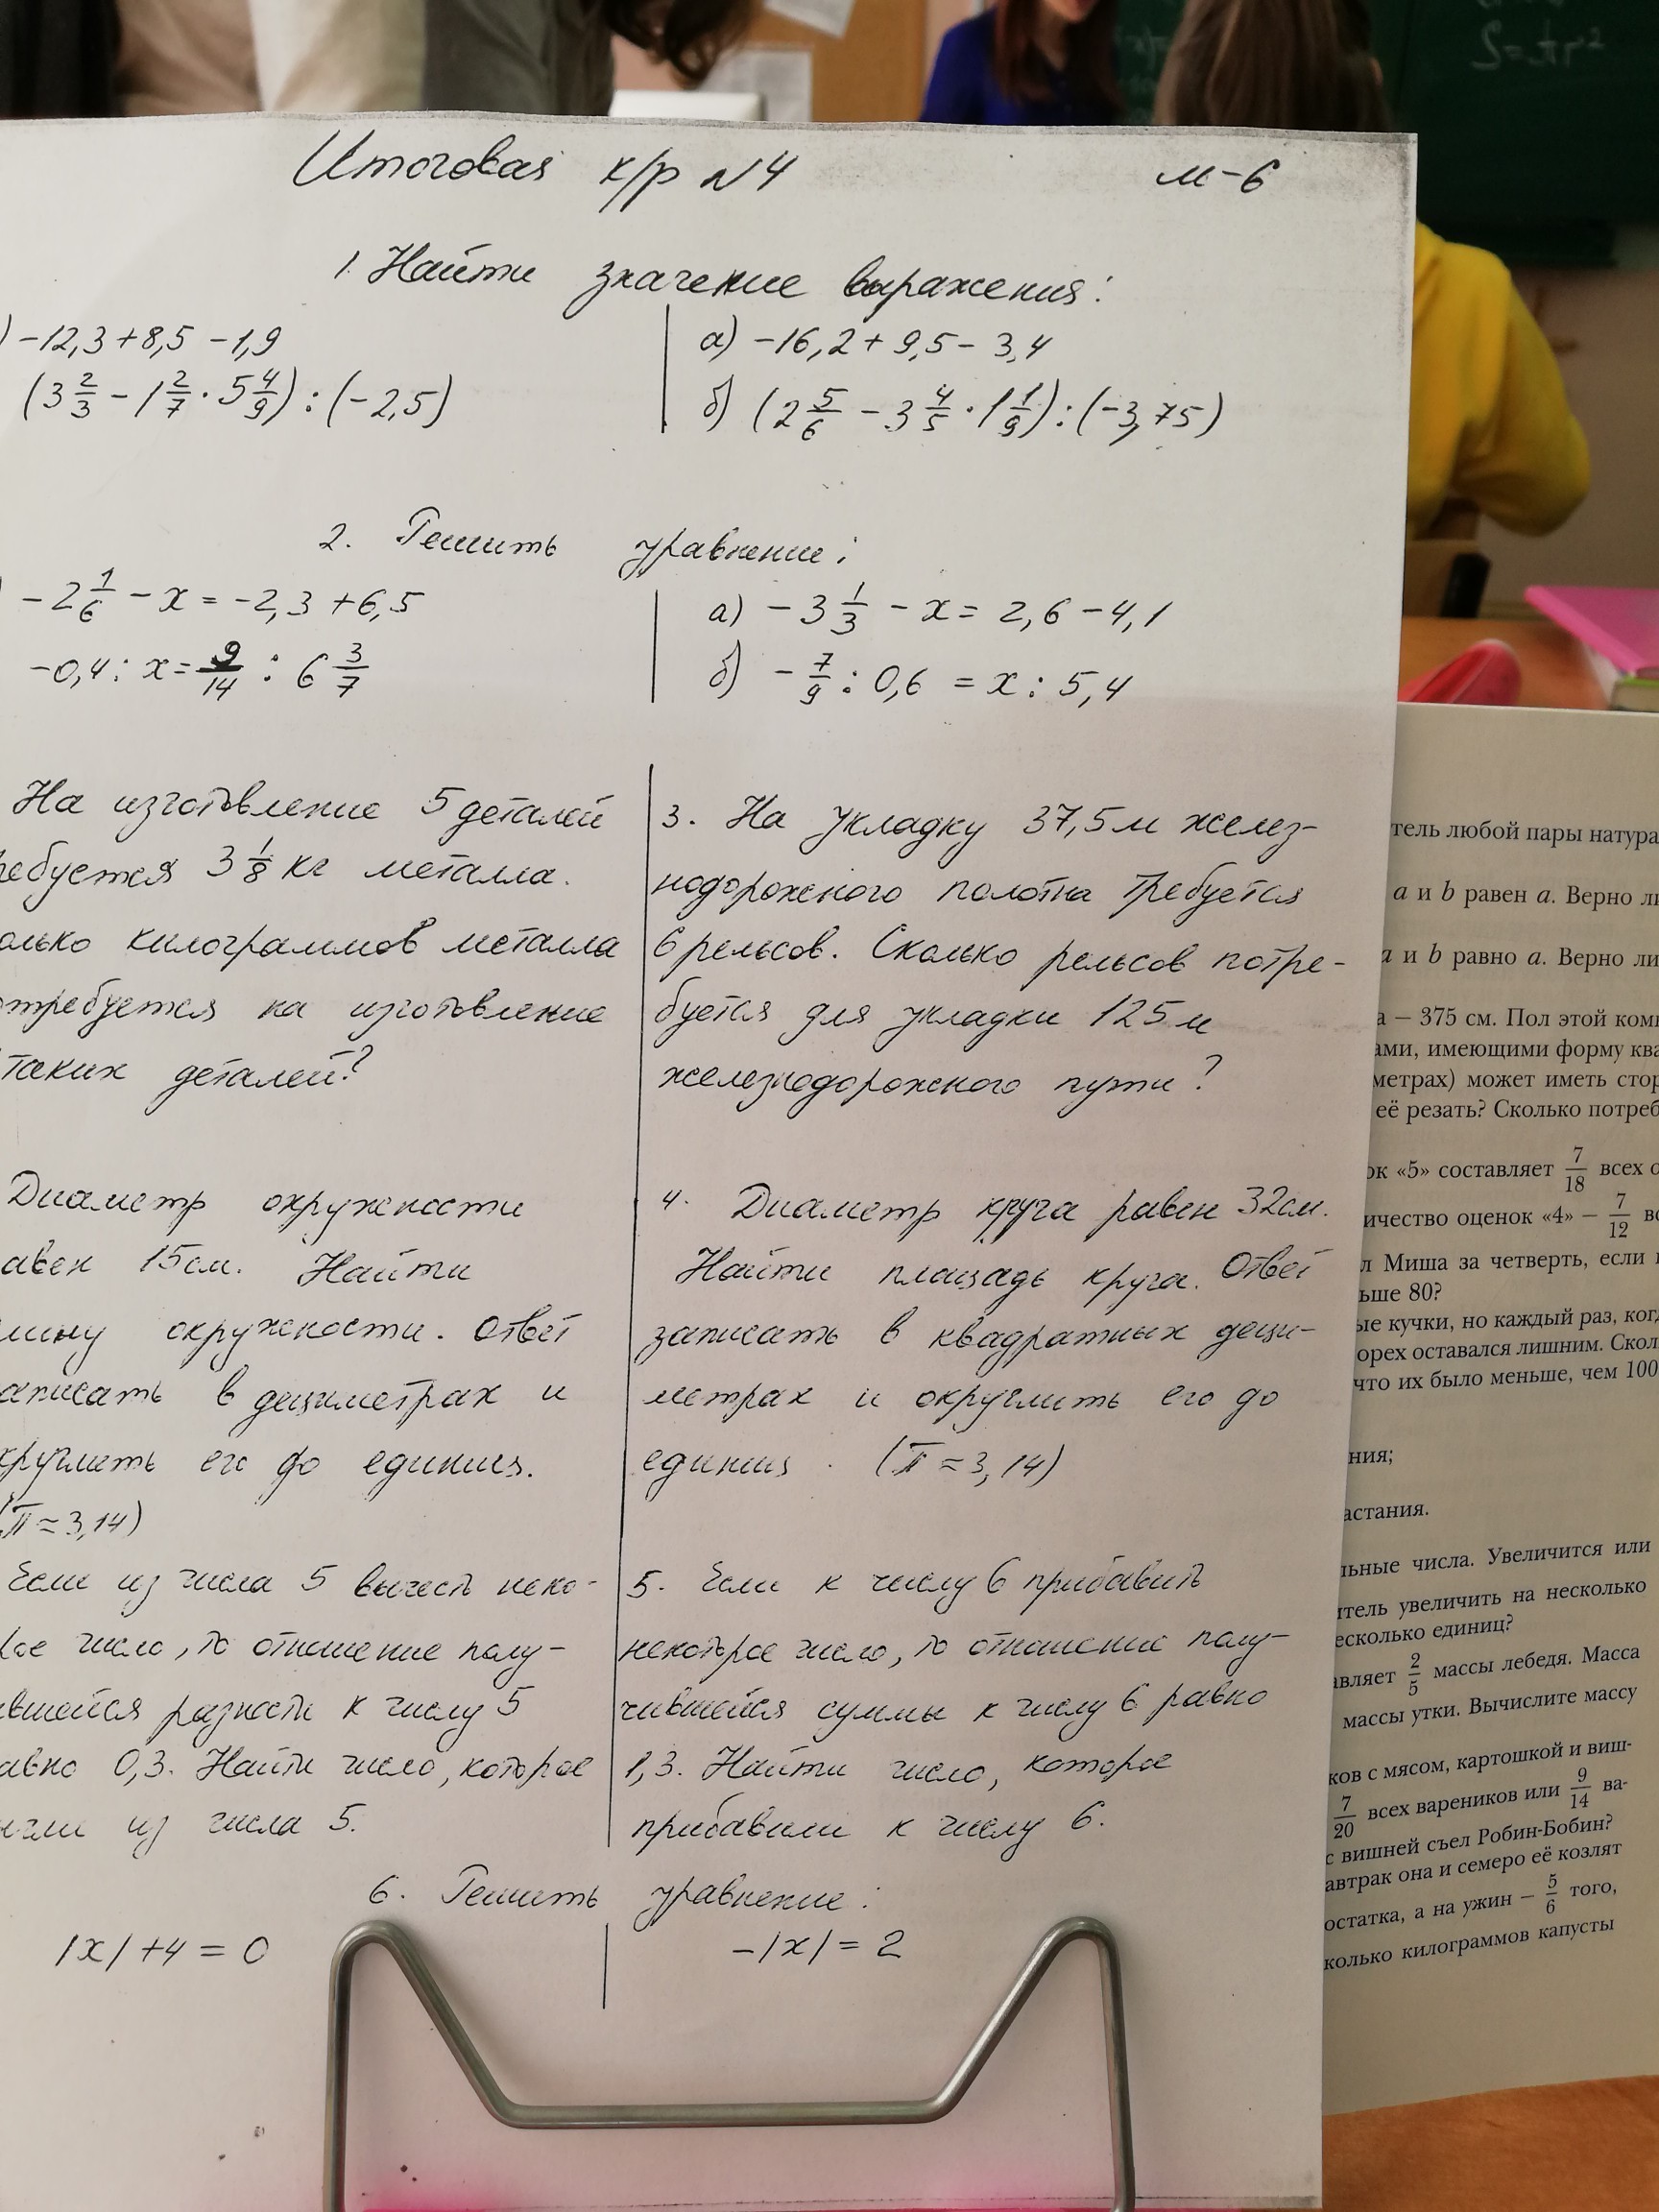 S=πr²
Итоговая к/р N4 м-6
1. Найти значение выражения:
) -12,3+8,5 -1,9
(3 2/3 - 1 2/7 · 5 4/9) : (-2,5)
а) -16,2+9,5-3,4
б) (2 5/6 - 3 4/5 · 1 1/9) : (-3,75)
2. Решить уравнение:
) -2 1/6 - x = -2,3+6,5
-0,4 : x = 9/14 : 6 3/7
а) -3 1/3 - x = 2,6-4,1
б) -7/9 : 0,6 = x : 5,4
На изготовление 5 деталей
ребуется 3 1/8 кг металла.
олько килограммов металла
отребуется на изготовление
таких деталей?
3. На укладку 37,5м желез-
нодорожного полотна требуется
6 рельсов. Сколько рельсов потре-
буется для укладки 125м
железнодорожного пути?
Диаметр окружности
авен 15см. Найти
лину окружности. Ответ
аписать в дециметрах и
круглить его до единиц.
(π≈3,14)
4. Диаметр круга равен 32см.
Найти площадь круга. Ответ
записать в квадратных деци-
метрах и округлить его до
единиц. (π≈3,14)
Если из числа 5 вычесть неко-
рое число, то отношение полу-
ившейся разности к числу 5
авно 0,3. Найти число, которое
из числа 5.
5. Если к числу 6 прибавить
некоторое число, то отношение полу-
чившейся суммы к числу 6 равно
1,3. Найти число, которое
прибавили к числу 6.
6. Решить уравнение:
|x|+4=0
-|x|=2
тель любой пары натура
a и b равен a. Верно ли
a и b равно a. Верно ли
а – 375 см. Пол этой комн
ами, имеющими форму ква
метрах) может иметь стор
её резать? Сколько потреб
ок «5» составляет 7/18 всех о
ичество оценок «4» – 7/12 вс
л Миша за четверть, если
ьше 80?
ые кучки, но каждый раз, когд
орех оставался лишним. Скол
что их было меньше, чем 100
ния;
астания.
льные числа. Увеличится или
итель увеличить на несколько
есколько единиц?
авляет 2/5 массы лебедя. Масса
массы утки. Вычислите массу
ков с мясом, картошкой и виш-
7/20 всех вареников или 9/14 ва-
с вишней съел Робин-Бобин?
автрак она и семеро её козлят
остатка, а на ужин – 5/6 того,
колько килограммов капусты